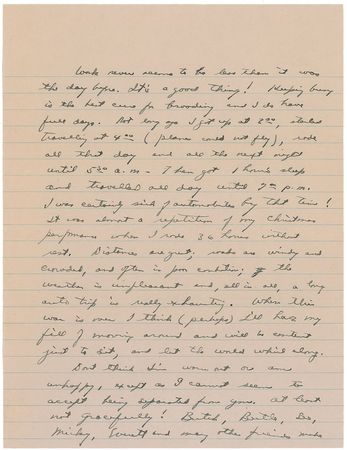 Work never seems to be less than it was
the day before. It's a good thing! Keeping busy
is the best cure for brooding and I do have
full days. Not long ago I got up at 2:00, started
travelling at 4:00 (planes could not fly), rode
all that day and all the next night
until 5:30 a.m. - Then got 1 hour's sleep
and travelled all day until 7:00 p.m.
I was certainly sick of automobiles by that time!
It was almost a repetition of my Christmas
performance when I rode 36 hours without
rest. Distances are great; roads are windy and
crowded, and often in poor condition; the
weather is unpleasant and, all in all, a long
auto trip is really exhausting. When this
war is over I think (perhaps) I'll have my
fill of moving around and will be content
just to sit, and let the world whirl along.
Don't think I'm worn out or am
unhappy, except as I cannot seem to
accept being separated from you. at least
not gracefully! Butch, Beetle, Lee,
Mickey, Everett and many other friends make